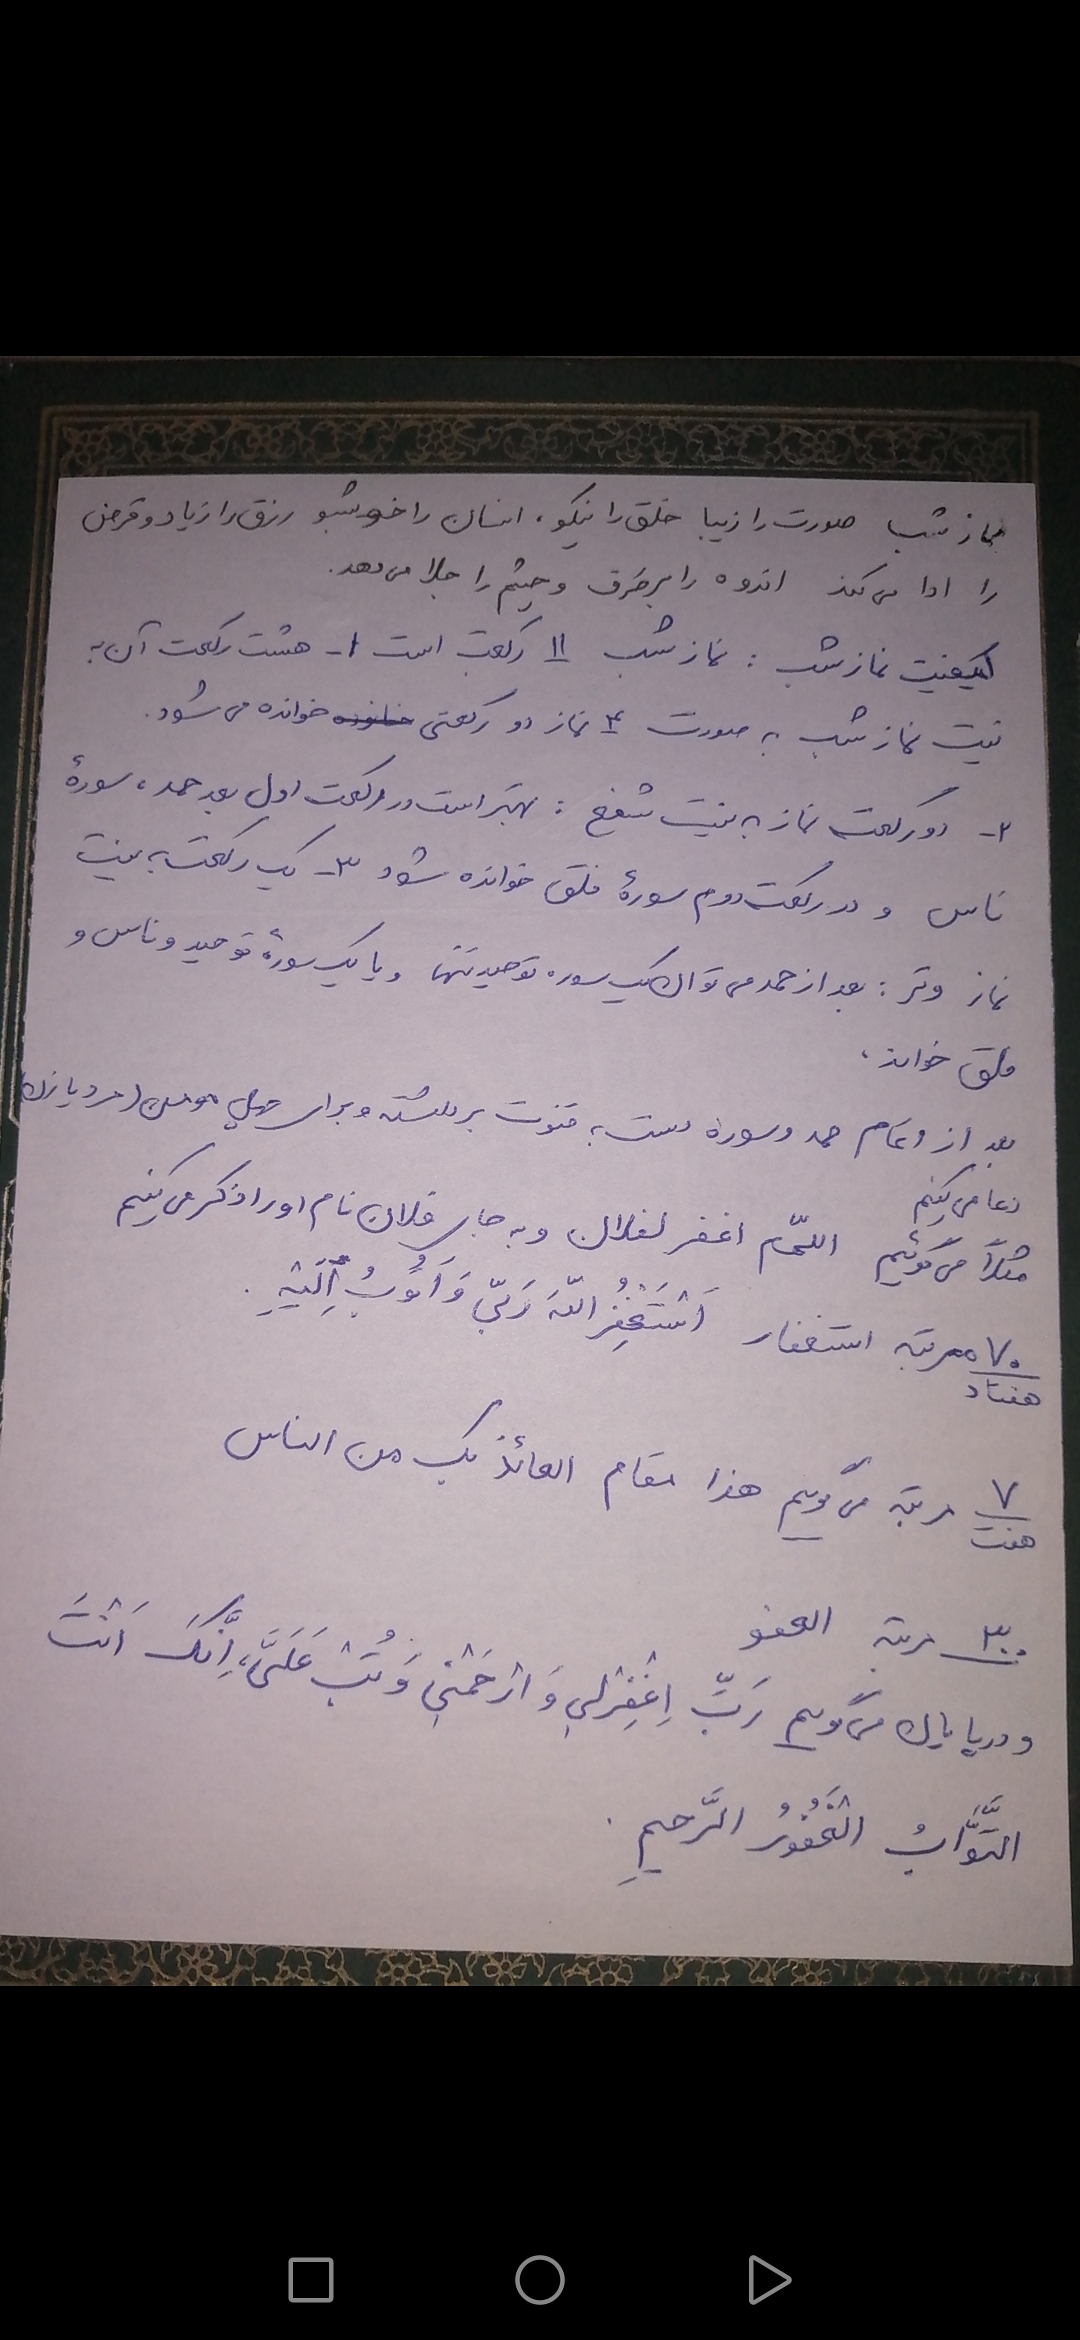 نماز شب صورت را زیبا خلق را نیکو، انسان را خوشبو رزق را زیاد و قرض
را ادا می‌کند اندوه را برطرف و چشم را جلا می‌دهد.
کیفیت نماز شب : نماز شب ۱۱ رکعت است ۱- هشت رکعت آن به
نیت نماز شب به صورت ۴ نماز دو رکعتی خوانده می‌شود.
۲- دو رکعت نماز به نیت شفع : بهتر است در رکعت اول بعد حمد، سورهٔ
ناس و در رکعت دوم سورهٔ فلق خوانده شود ۳- یک رکعت به نیت
نماز وتر : بعد از حمد می‌توان یک سوره توحید تنها و یا یک سورهٔ توحید و ناس و
فلق خواند،
بعد از اتمام حمد و سوره دست به قنوت برداشته و برای چهل مومن (مرد یا زن)
دعا می‌کنیم
مثلاً می‌گوئیم اللهّم اغفر لفلان و به جای فلان نام او را ذکر می‌کنیم
۷۰ مرتبه استغفار اَسْتَغْفِرُ اللّهَ رَبّی وَ اَتُوبُ اِلَیْهِ.
هفتاد
۷ مرتبه می‌گویم هذا مقام العائذ بک من الناس
هفت
۳۰۰ مرتبه العفو
و در پایان می‌گویم رَبِّ اِغْفِرْلی وَ ارْحَمْنی وَ تُبْ عَلَیَّ، اِنَّکَ اَنْتَ
التَّوَّابُ الْغَفُورُ الرَّحیمِ.